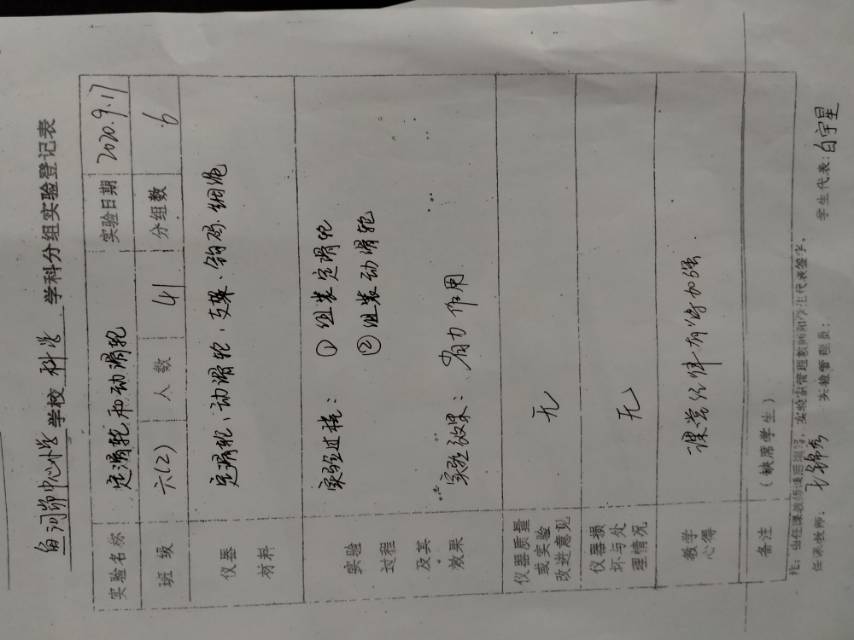 鱼河峁中心小学 学校 科学 学科分组实验登记表
实验名称 定滑轮和动滑轮 实验日期 2020.9.17
班级 六(2) 人数 41 分组数 6
仪器材料 定滑轮、动滑轮、支架、钩码、细绳
实验过程及其效果 实验过程：① 组装定滑轮
② 组装动滑轮
实验效果：省力作用
仪器质量或实验改进意见 无
仪器损坏与处理情况 无
教学心得 课堂纪律有待加强
备注 （缺席学生）
注：由任课教师课后填写，实验室管理教师和学生代表签字。
任课教师： 实验管理员： 学生代表：白宇星